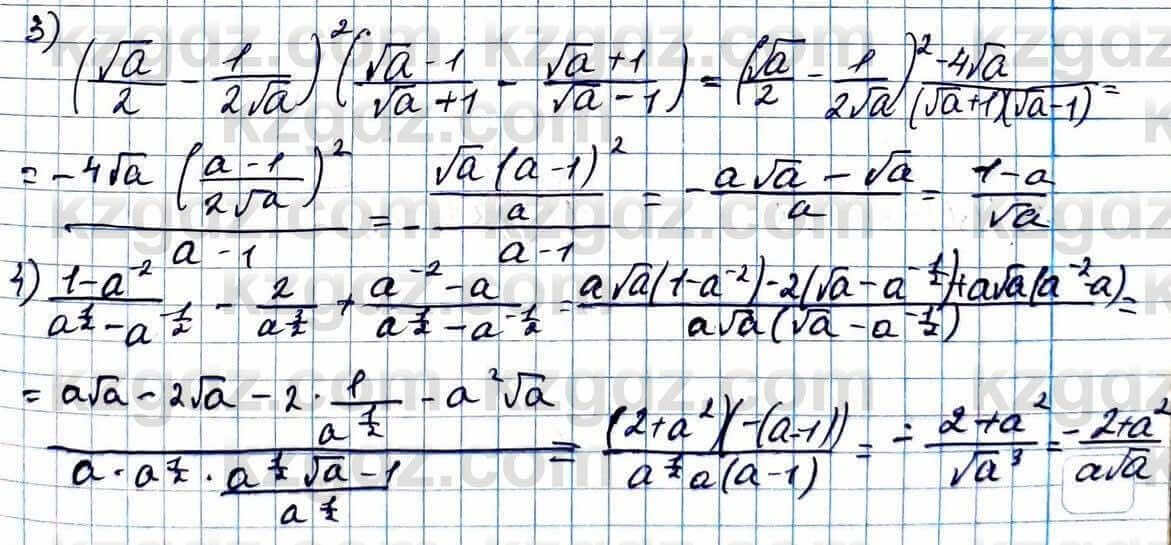 3) (√a/2 - 1/(2√a))² ((√a-1)/(√a+1) - (√a+1)/(√a-1)) = (√a/2 - 1/(2√a))² (-4√a)/((√a+1)(√a-1)) =
= (-4√a ((a-1)/(2√a))²)/(a-1) = - ((√a(a-1)²)/a)/(a-1) = - (a√a - √a)/a = (1-a)/√a
4) (1-a⁻²)/(a^½ - a^-½) - 2/(a^3/2) + (a⁻² - a)/(a^½ - a^-½) = (a√a(1-a⁻²) - 2(√a - a^-½) + a√a(a⁻² - a))/(a√a(√a - a^-½)) =
= (a√a - 2√a - 2·1/(a^½) - a²√a)/(a·a^½·(a^½√a - 1)/(a^½)) = ((2+a²)(-(a-1)))/(a^½a(a-1)) = - (2+a²)/√a³ = - (2+a²)/(a√a)
kzgdz.com